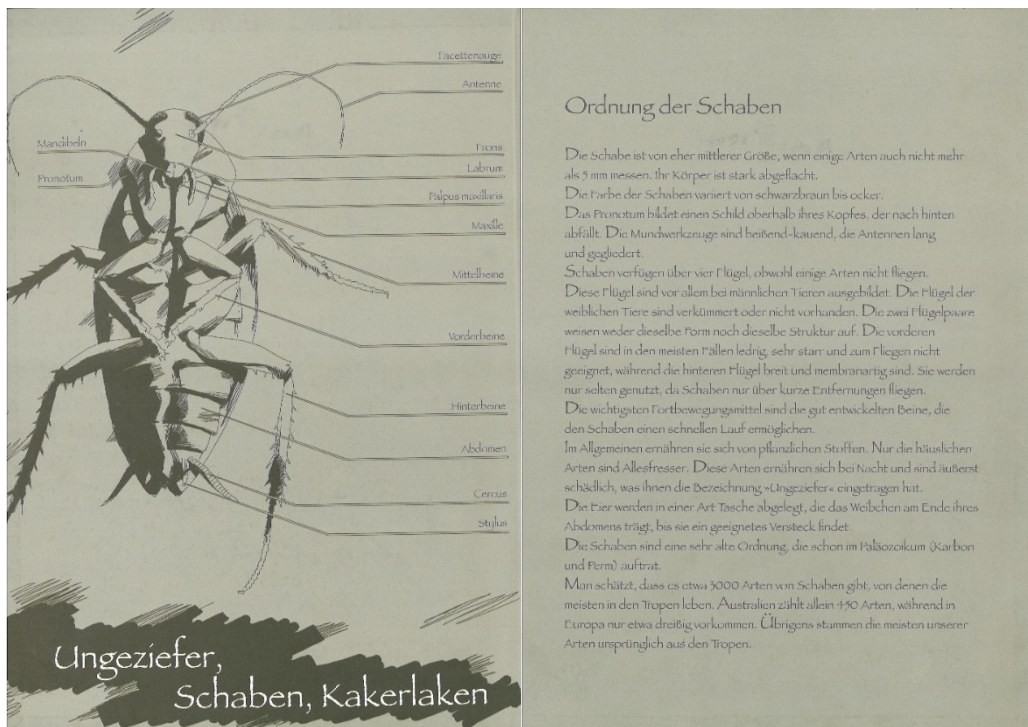 Facettenauge
Antenne
Mandibeln
Frons
Labrum
Pronotum
Palpus maxillaris
Maxille
Mittelbeine
Vorderbeine
Hinterbeine
Abdomen
Cercus
Stylus
Ungeziefer,
Schaben, Kakerlaken
Ordnung der Schaben
Die Schabe ist von eher mittlerer Größe, wenn einige Arten auch nicht mehr
als 5 mm messen. Ihr Körper ist stark abgeflacht.
Die Farbe der Schaben variiert von schwarzbraun bis ocker.
Das Pronotum bildet einen Schild oberhalb ihres Kopfes, der nach hinten
abfällt. Die Mundwerkzeuge sind beißend-kauend, die Antennen lang
und gegliedert.
Schaben verfügen über vier Flügel, obwohl einige Arten nicht fliegen.
Diese Flügel sind vor allem bei männlichen Tieren ausgebildet. Die Flügel der
weiblichen Tiere sind verkümmert oder nicht vorhanden. Die zwei Flügelpaare
weisen weder dieselbe Form noch dieselbe Struktur auf. Die vorderen
Flügel sind in den meisten Fällen ledrig, sehr starr und zum Fliegen nicht
geeignet, während die hinteren Flügel breit und membranartig sind. Sie werden
nur selten genutzt, da Schaben nur über kurze Entfernungen fliegen.
Die wichtigsten Fortbewegungsmittel sind die gut entwickelten Beine, die
den Schaben einen schnellen Lauf ermöglichen.
Im Allgemeinen ernähren sie sich von pflanzlichen Stoffen. Nur die häuslichen
Arten sind Allesfresser. Diese Arten ernähren sich bei Nacht und sind äußerst
schädlich, was ihnen die Bezeichnung »Ungeziefer« eingetragen hat.
Die Eier werden in einer Art Tasche abgelegt, die das Weibchen am Ende ihres
Abdomens trägt, bis sie ein geeignetes Versteck findet.
Die Schaben sind eine sehr alte Ordnung, die schon im Paläozoikum (Karbon
und Perm) auftrat.
Man schätzt, dass es etwa 3000 Arten von Schaben gibt, von denen die
meisten in den Tropen leben. Australien zählt allein 450 Arten, während in
Europa nur etwa dreißig vorkommen. Übrigens stammen die meisten unserer
Arten ursprünglich aus den Tropen.